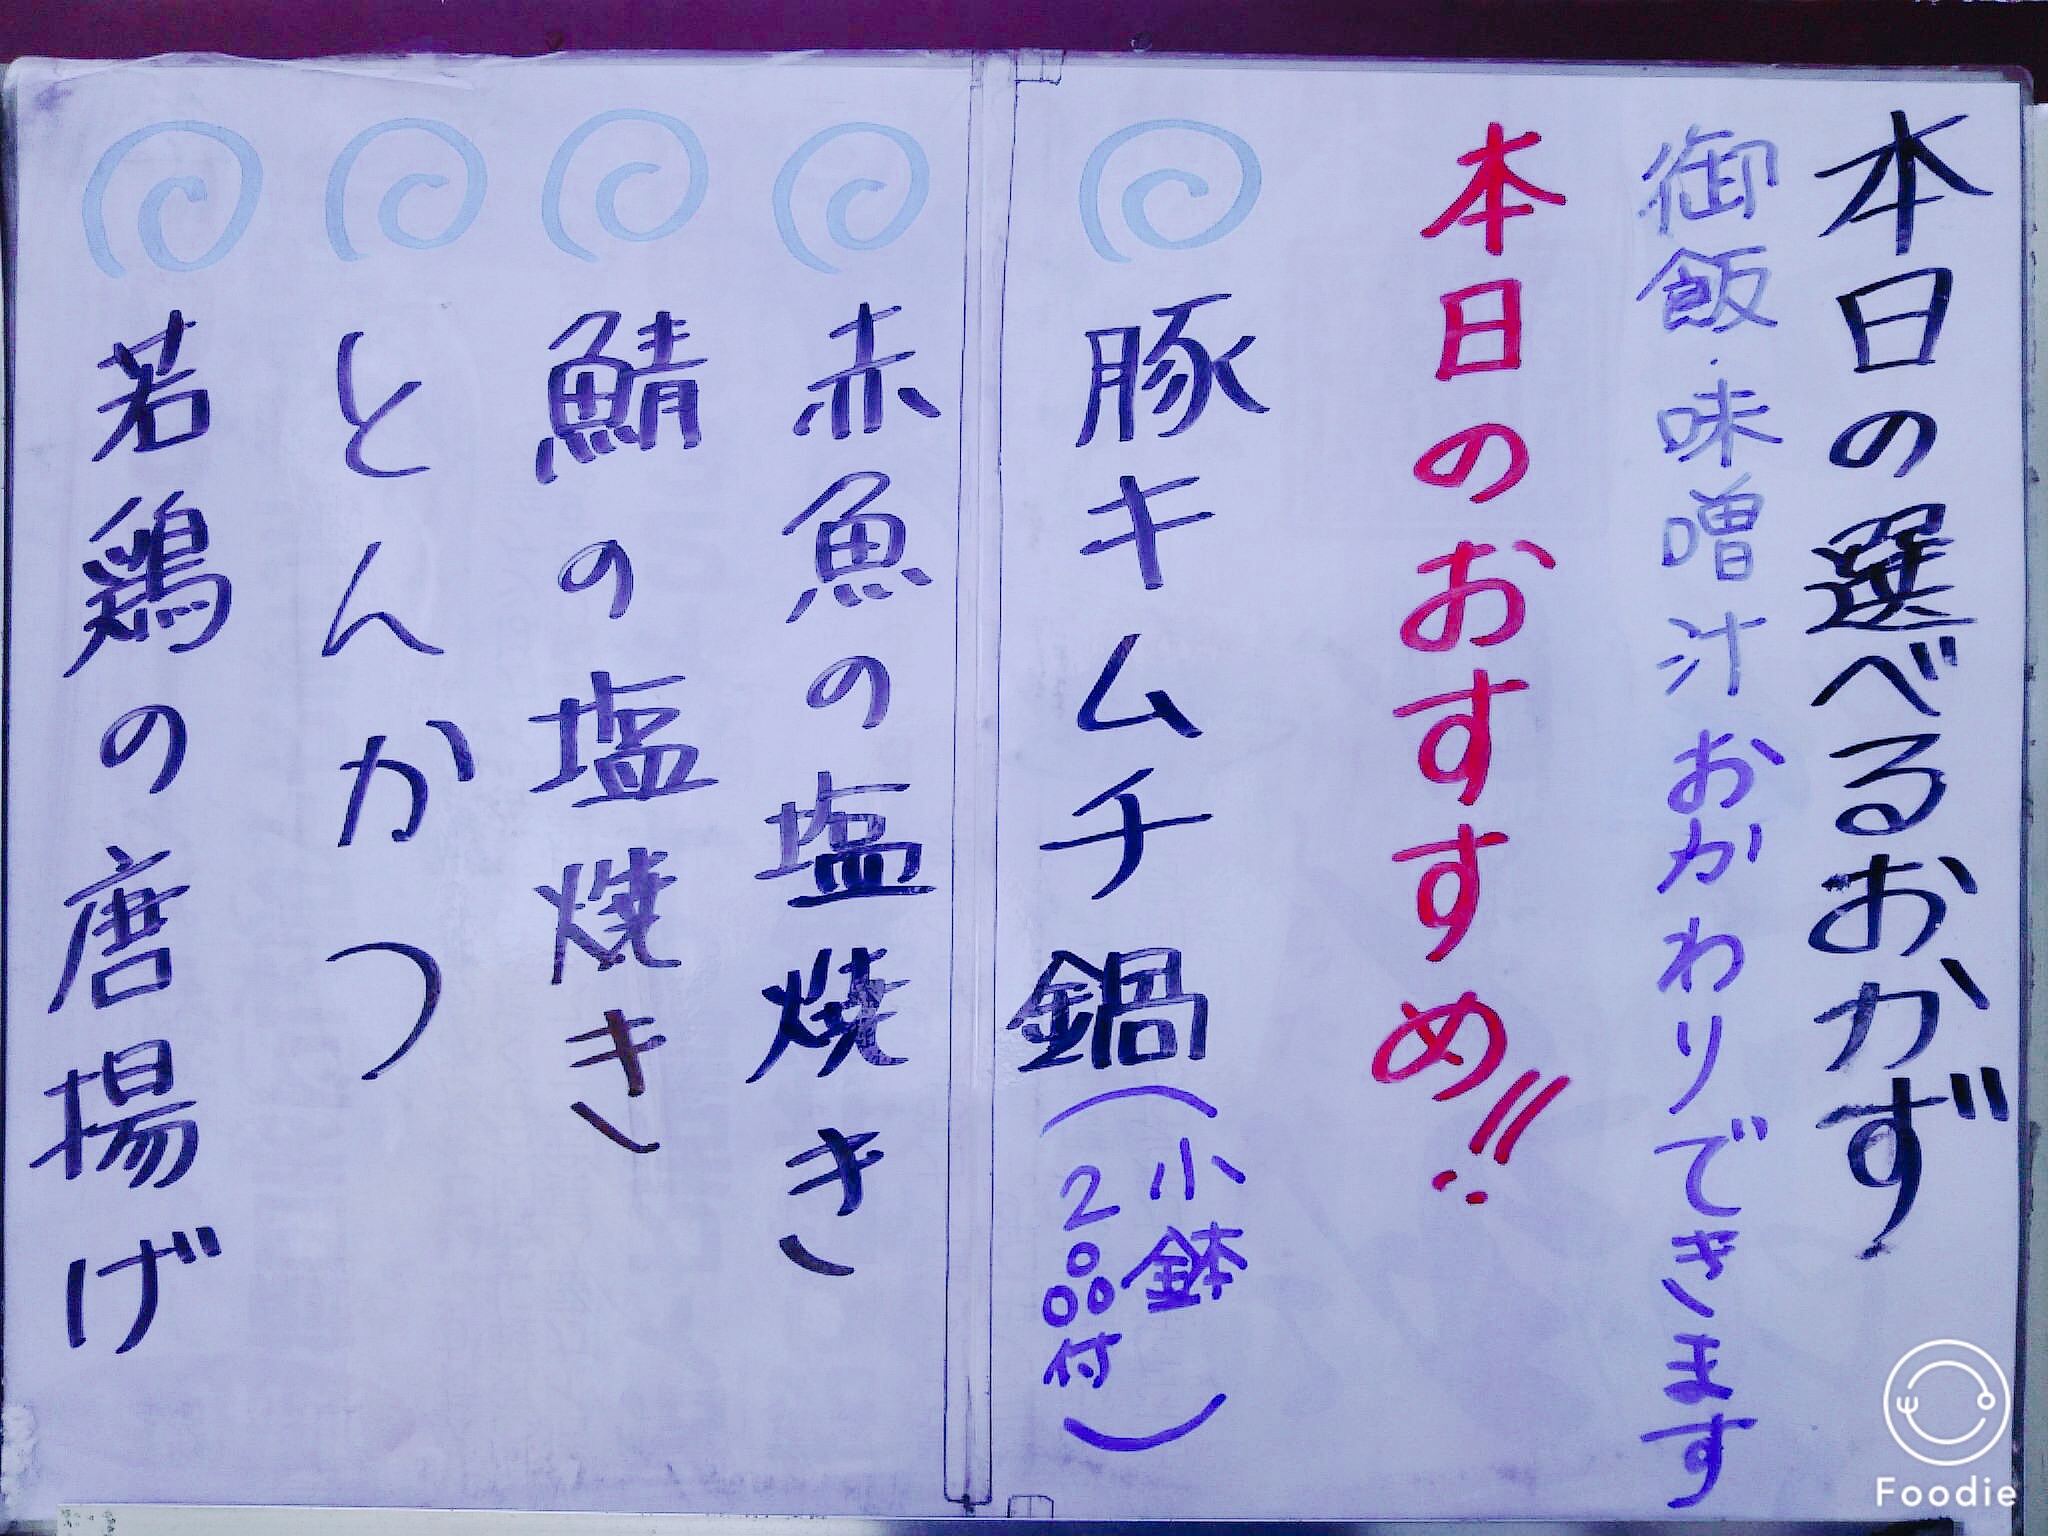 本日の選べるおかず
御飯・味噌汁おかわりできます
本日のおすすめ!!
豚キムチ鍋(小鉢2品付)
赤魚の塩焼き
鯖の塩焼き
とんかつ
若鶏の唐揚げ
Foodie